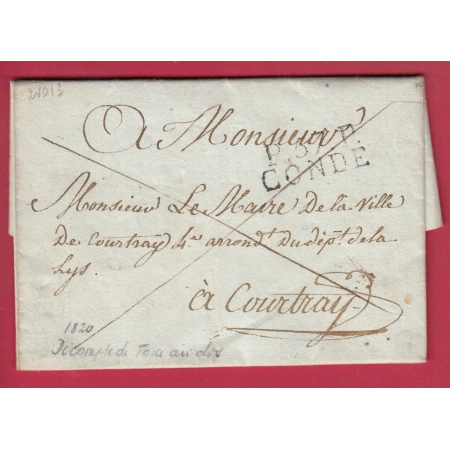 A Monsieur
P.57.P.
CONDÉ
Monsieur Le Maire De la Ville
De Courtray 4e arrondt. Du dépt. de la
Lys.
à Courtray.
1820
Décompte de Taxe au dos